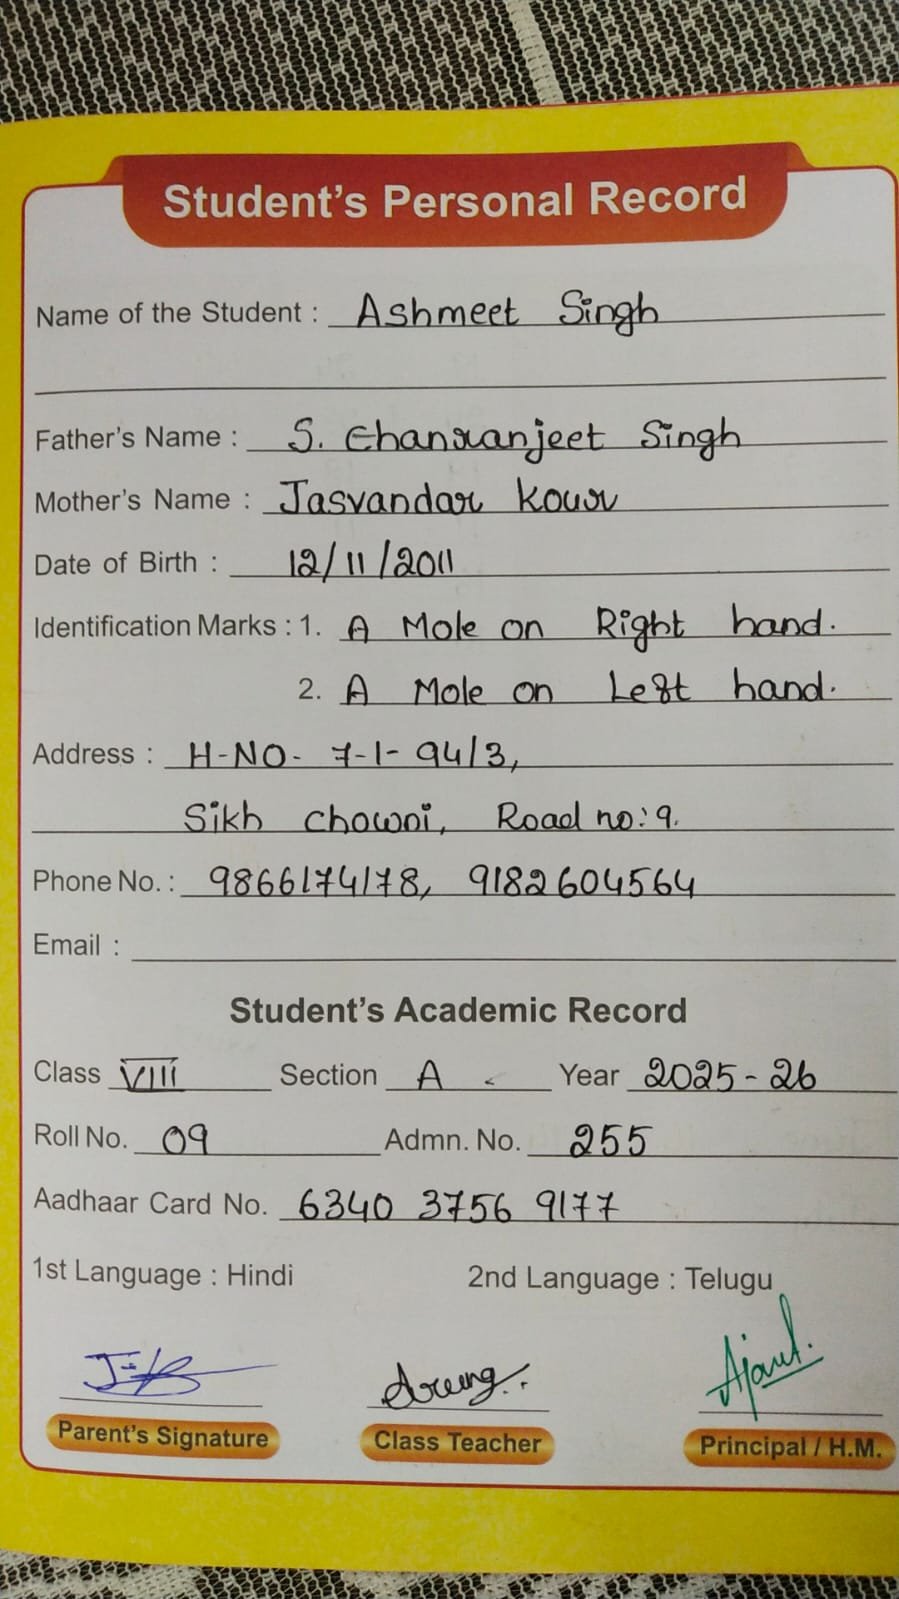 Student's Personal Record
Name of the Student : Ashmeet Singh
Father's Name : S. Chanranjeet Singh
Mother's Name : Jasvandar Kour
Date of Birth : 12/11/2011
Identification Marks : 1. A Mole on Right hand.
2. A Mole on Left hand.
Address : H-NO- 7-1-94/3,
Sikh chowni, Road no:9.
Phone No. : 9866174178, 9182604564
Email :
Student's Academic Record
Class VIII Section A Year 2025-26
Roll No. 09 Admn. No. 255
Aadhaar Card No. 6340 3756 9177
1st Language : Hindi 2nd Language : Telugu
Parent's Signature Class Teacher Principal / H.M.